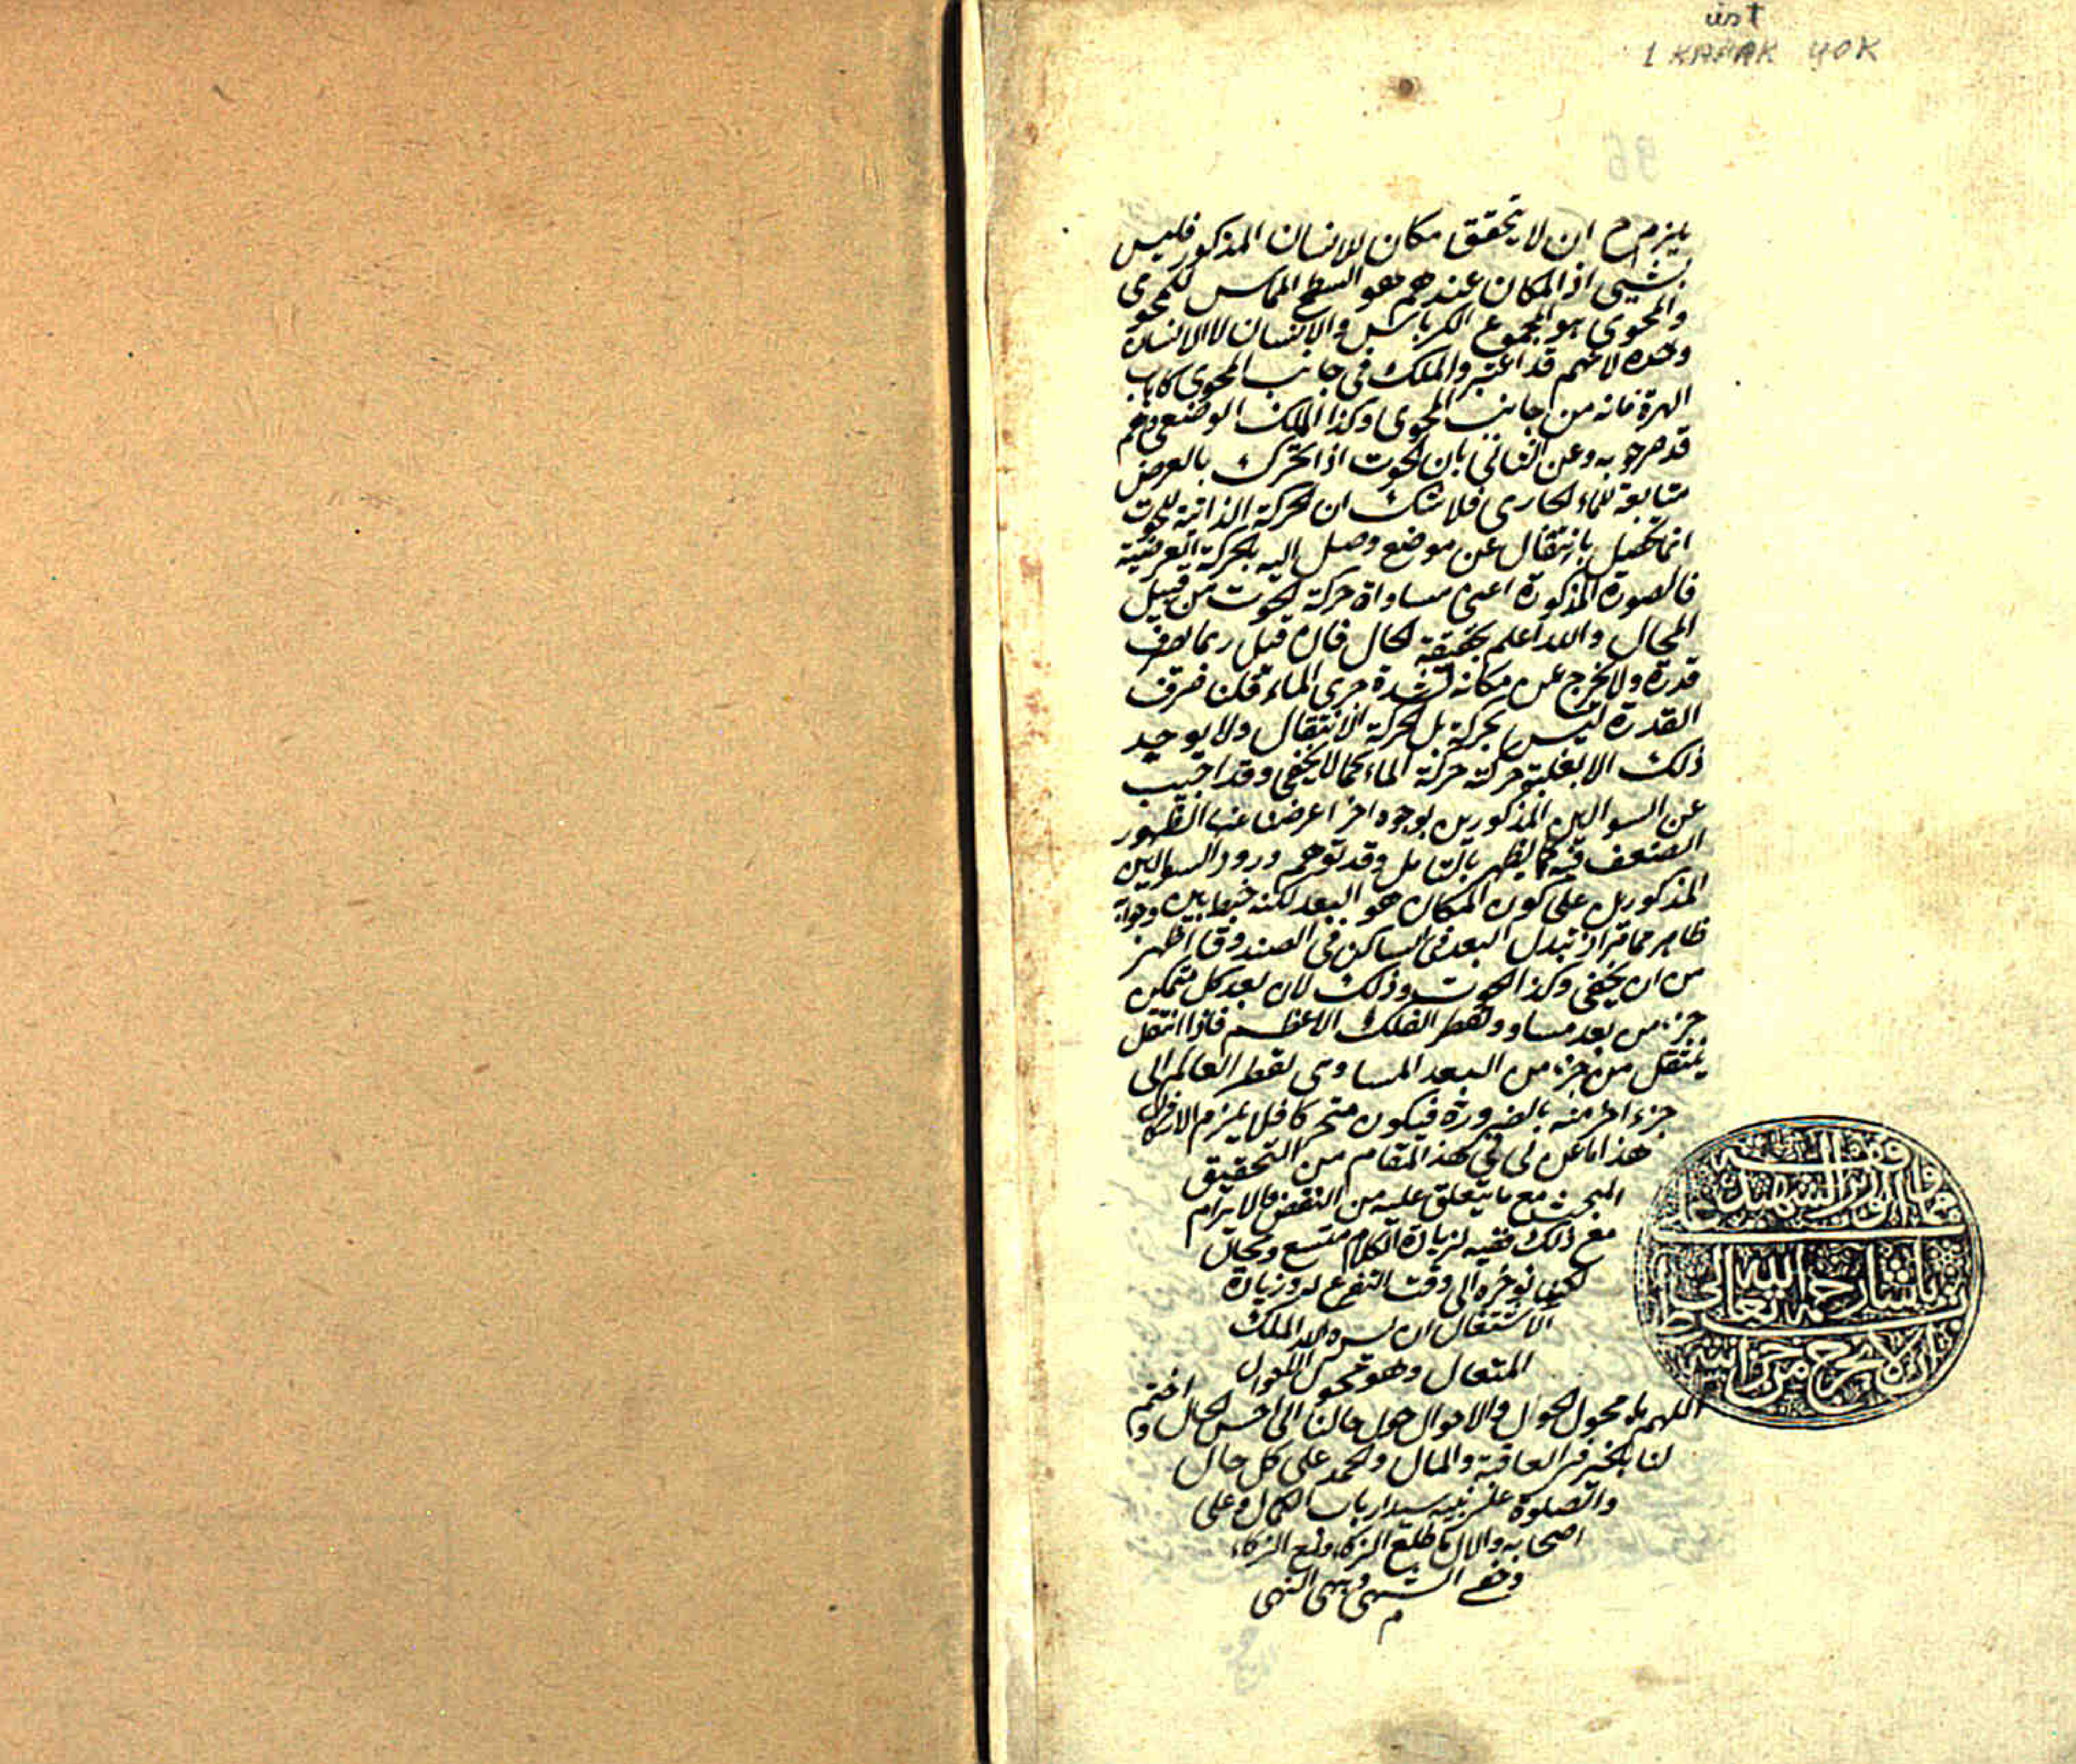 üst
1 KAPAK YOK
يلزم ح ان لا يتحقق مكان للانسان المذكور فليس
بشيئ اذ المكان عندهم هو السطح المماس للمحوى
والمحوى هو المجموع الكرباس والانسان لا الانسان
وحده لانهم قد اعتبروا الملك فى جانب المحوى كاهاب
الهرة فانه من جانب المحوى وكذا الملك الوضعى وهم
قد صرحوا به وعن الثانى بان الحوت اذا تحرك بالعرض
متابعة للماء الجارى فلا شك ان الحركة الذاتية للحوت
انما تحصل بانتقال عن موضع وصل اليه بالحركة العرضية
فالصورة المذكورة اعنى مساواة حركة الحوت من قبيل
المحال والله اعلم بحقيقة الحال فان قيل ربما يصرف
قدرة ولا يخرج عن مكانه لشدة جرى الماء قلنا صرف
القدرة ليس بحركة بل الحركة الانتقال ولا يوجد
ذلك الا بغلبة حركته حركة الماء كما لا يخفى وقد اجيب
عن السوالين المذكورين بوجوه اخر اعرضنا عنها لظهور
الضعف فيه كما يظهر بالتامل وقد توهم ورود السوالين
المذكورين على كون المكان هو البعد لكنه خبط بين وجوابه
ظاهر مما مر اذ تبدل البعد فى الساكن فى الصندوق اظهر
من ان يخفى وكذا الحوت وذلك لان بعد كل متمكن
جزء من بعد مساو لقطر الفلك الاعظم فاذا انتقل
ينتقل من جزء من البعد المساوى لقطر العالم الى
جزء اخر منه بالضرورة فيكون متحركا فلا يلزم الاشكال
هذا ما عن لى فى هذا المقام من التحقيق
المبحث مع ما يتعلق عليه من النقض والابرام
مع ذلك ففيه لزيادة الكلام متسع ومجال
لكنا نؤخره الى وقت التفرغ له وزيادة
الاشتغال ان يسره الله الملك
المتعال وهو محول الاحوال
اللهم يا محول الحول والاحوال حول حالنا الى احسن الحال واختم
لنا بالخير فى العاقبة والمال والحمد على كل حال
والصلوة على نبيه سيد ارباب الكمال وعلى
اصحابه والال ما طلع الزكاء ونع الزكاء
السهى النهى
م
مما وقفه
الوزير الشهيد على
پاشا رحمه الله تعالى بشرط
ان لا يخرج من خزانته